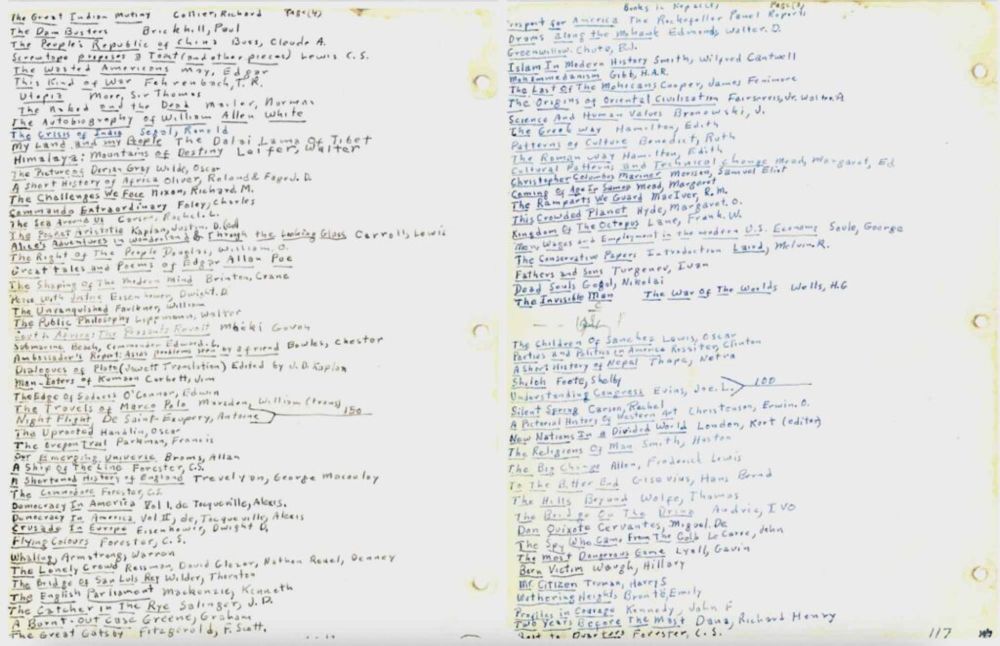 The Great Indian Mutiny Collier, Richard Page (4)
The Dam Busters Brickhill, Paul
The People's Republic of China Buss, Claude A.
Screwtape proposes a Toast (and other pieces) Lewis C.S.
The Wasted Americans May, Edgar
This Kind of War Fehrenbach, T.R.
Utopia More, Sir Thomas
The Naked and the Dead Mailer, Norman
The Autobiography of William Allen White
The Crisis of India Segal, Ronald
My Land and my People The Dalai Lama Of Tibet
Himalaya: Mountains of Destiny Leifer, Walter
The Picture of Dorian Gray Wilde, Oscar
A Short History of Africa Oliver, Roland & Fage J. D.
The Challenges We Face Nixon, Richard M.
Commando Extraordinary Foley, Charles
The Sea Around Us Carson, Rachel L.
The Pocket Aristotle Kaplan, Justin. D.
Alice's Adventures in Wonderland & Through the Looking Glass Carroll, Lewis
The Right of The People Douglas, William, O.
Great tales and Poems of Edgar Allan Poe
The Shaping Of The Modern Mind Brinton, Crane
Eisenhower, Dwight. D
The Unvanquished Faulkner, William
The Public Philosophy Lippmann, Walter
South Africa: The Peasants Revolt Mbeki Govan
Submarine Beach, Commander Edward. L.
Ambassador's Report: Asias problems seen by a friend Bowles, Chestor
Dialogues of Plato (Jowett Translation) Edited by J. D. Kaplan
Man-Eaters of Kumaon Corbett, Jim
The Edge Of Sadness O'Connor, Edwin
The Travels of Marco Polo Marsden, William (trans)
Night Flight De Saint-Exupery, Antoine 150
The Uprooted Handlin, Oscar
The Oregon Trail Parkman, Francis
Our Emerging Universe Broms, Allan
A Ship Of The Line Forester, C.S.
A Shortened History of England Trevelyan, George Macaulay
The Commodore Forester, C.S
Democracy In America Vol I. de Tocqueville, Alexis.
Democracy In America Vol II, de, Tocqueville, Alexis
Crusade In Europe Eisenhower, Dwight D,
Flying Colours Forester, C.S.
Whaling, Armstrong, Warren
The Lonely Crowd Reisman, David Glazer, Nathan Reuel, Denney
The Bridge of San Luis Rey Wilder, Thornton
The English Parliament Mackenzie, Kenneth
The Catcher in The Rye Salinger, J.D.
A Burnt-Out Case Greene, Graham
The Great Gatsby Fitzgerald, F. Scott.
Books in Page
Prospect for America The Rockefeller Panel Reports
Drums Along the Mohawk Edmonds, Walter. D.
Greenwillow. Chute, B.J.
Islam In Modern History Smith, Wilfred Cantwell
Mohammedanism Gibb, H.A.R.
The Last Of The Mohicans Cooper, James Fenimore
The Origins of Oriental Civilization Fairservis, Jr. Walter A
Science And Human Values Bronowski, J.
The Greek Way Hamilton, Edith
Patterns of Culture Benedict, Ruth
The Roman Way Hamilton, Edith
Cultural Patterns and Technical Change Mead, Margaret, Ed
Christopher Columbus Mariner Morison, Samuel Eliot
Coming of Age In Samoa Mead, Margaret
The Ramparts We Guard MacIver, R.M.
This Crowded Planet Hyde, Margaret. O.
Kingdom Of The Octopus Lane, Frank. W.
Men, Wages and Employment in the modern U.S. Economy Soule, George
The Conservative Papers Introduction Laird, Melvin. R.
Fathers and Sons Turgenev, Ivan
Dead Souls Gogol, Nikolai
The Invisible Man The War Of The Worlds Wells, H.G
The Children Of Sanchez Lewis, Oscar
Parties and Politics in America Rossiter, Clinton
A Short History of Nepal Thapa, Netra
Shiloh Foote, Shelby
Understanding Congress Evins, Joe. L. 100
Silent Spring Carson, Rachel
A Pictorial History of Western Art Christensen, Erwin. O.
New Nations In a Divided World London, Kurt (editor)
The Religions Of Man Smith, Huston
The Big Change Allen, Frederick Lewis
To The Bitter End Gisevius, Hans Bernd
The Hills Beyond Wolfe, Thomas
The Bridge On The Drina Andric, IVO
Don Quixote Cervantes, Miguel. De
The Spy Who Came From The Cold Le Carre, John
The Most Dangerous Game Lyall, Gavin
Born Victim Waugh, Hillary
Mr Citizen Truman, Harry S
Wuthering Heights Bronte, Emily
Profiles in Courage Kennedy, John F
Two Years Before The Mast Dana, Richard Henry
Beat to Quarters Forester, C.S. 117